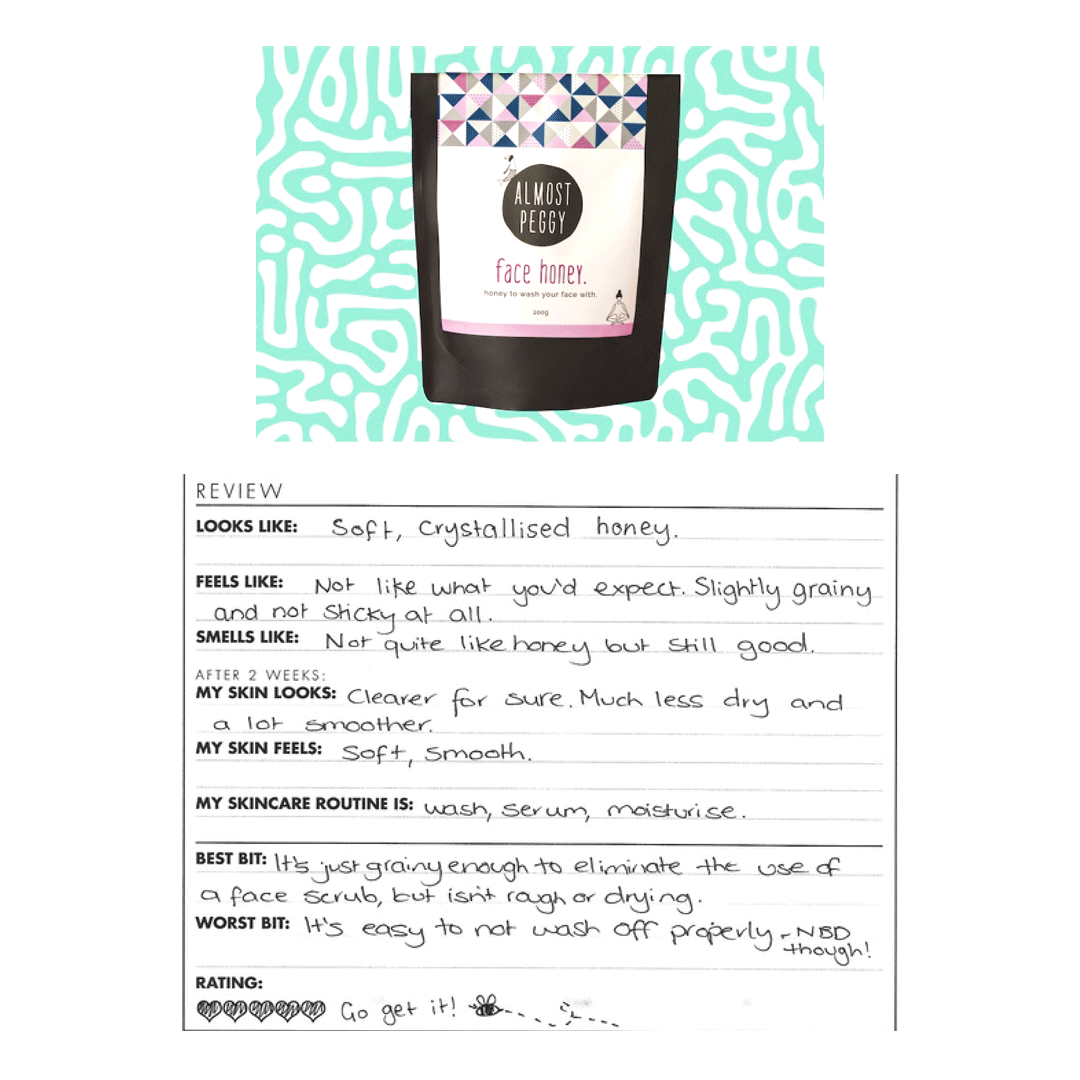 ALMOST
PEGGY
face honey.
honey to wash your face with.
200g
REVIEW
LOOKS LIKE: Soft, Crystallised honey.
FEELS LIKE: Not like what you'd expect. Slightly grainy
and not sticky at all.
SMELLS LIKE: Not quite like honey but still good.
AFTER 2 WEEKS:
MY SKIN LOOKS: Clearer for sure. Much less dry and
a lot smoother.
MY SKIN FEELS: Soft, smooth.
MY SKINCARE ROUTINE IS: wash, serum, moisturise.
BEST BIT: It's just grainy enough to eliminate the use of
a face scrub, but isn't rough or drying.
WORST BIT: It's easy to not wash off properly - NBD
though!
RATING:
Go get it!